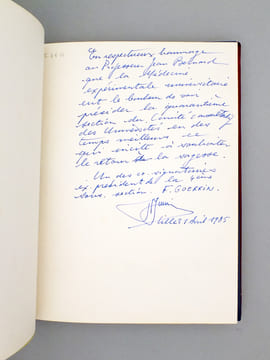 En respectueux hommage
au Professeur Jean Bernard
que la Médecine
expérimentale universitaire
eut le bonheur de voir
présider la quarantième
section du Comité Consultatif
des Universités en des
temps meilleurs ce
qui incite à souhaiter
le retour de la sagesse.
Un des co-signataires
ex président de la 4ème
sous-section. F. GUERRIN.
Lille 1 Avril 1985